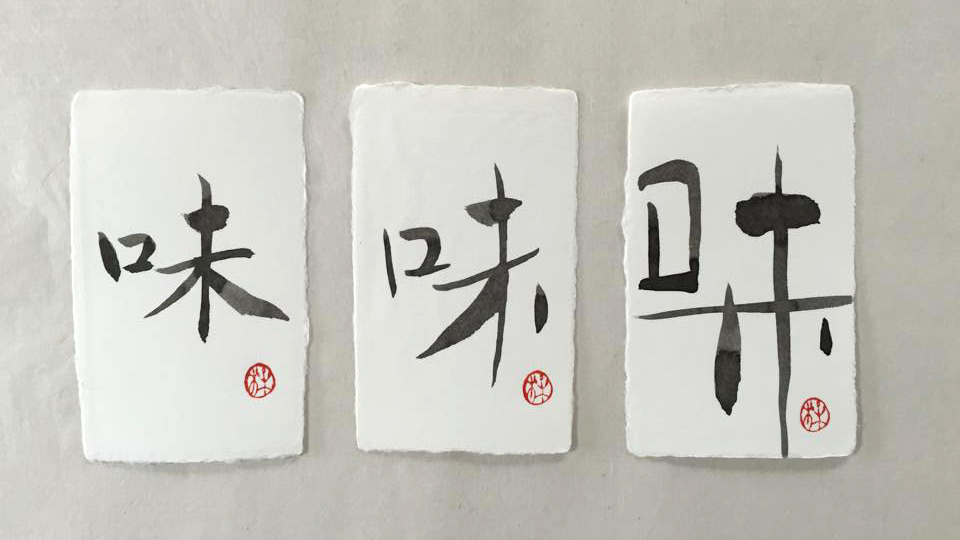 味
味
味